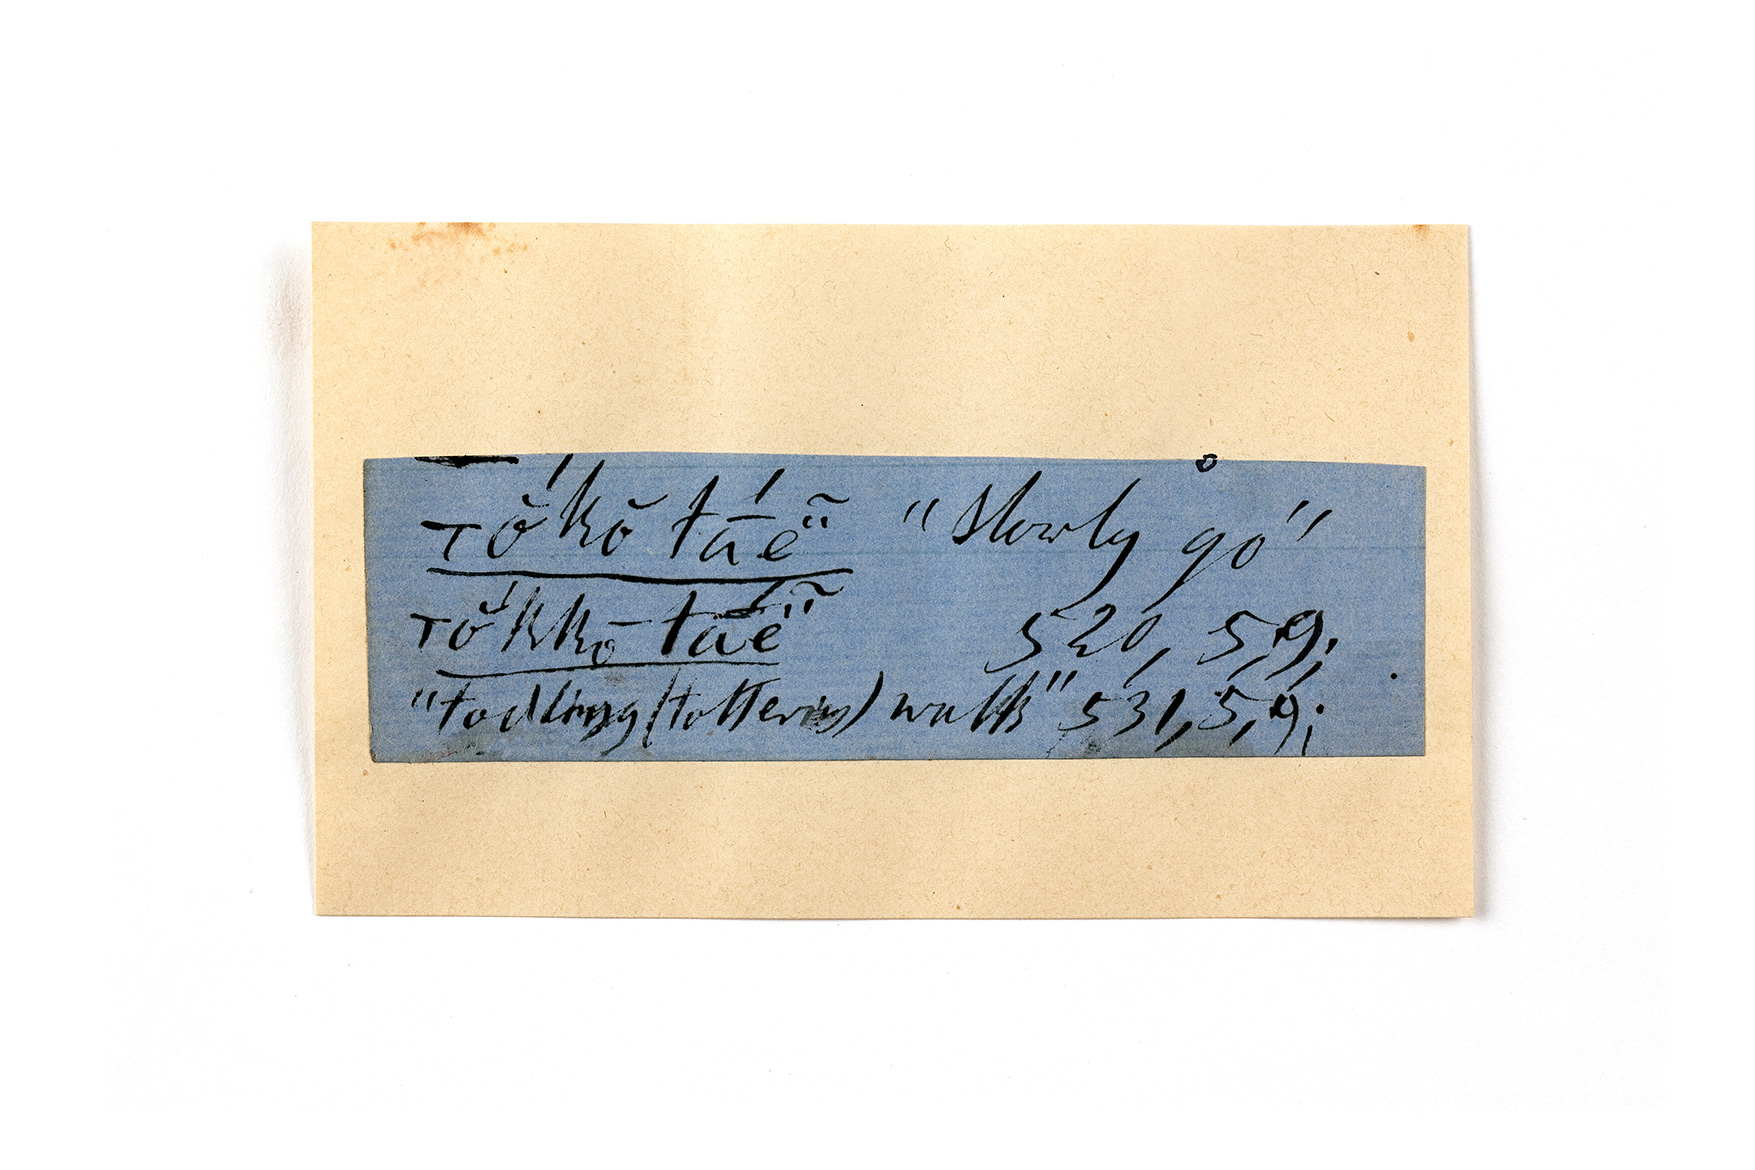 τŏ́kŏ tā́ë̃ "slowly go"
τŏ́kkō tā́ë̃ 520, 5,9;
"todling (tottering) walk" 531, 5,9;